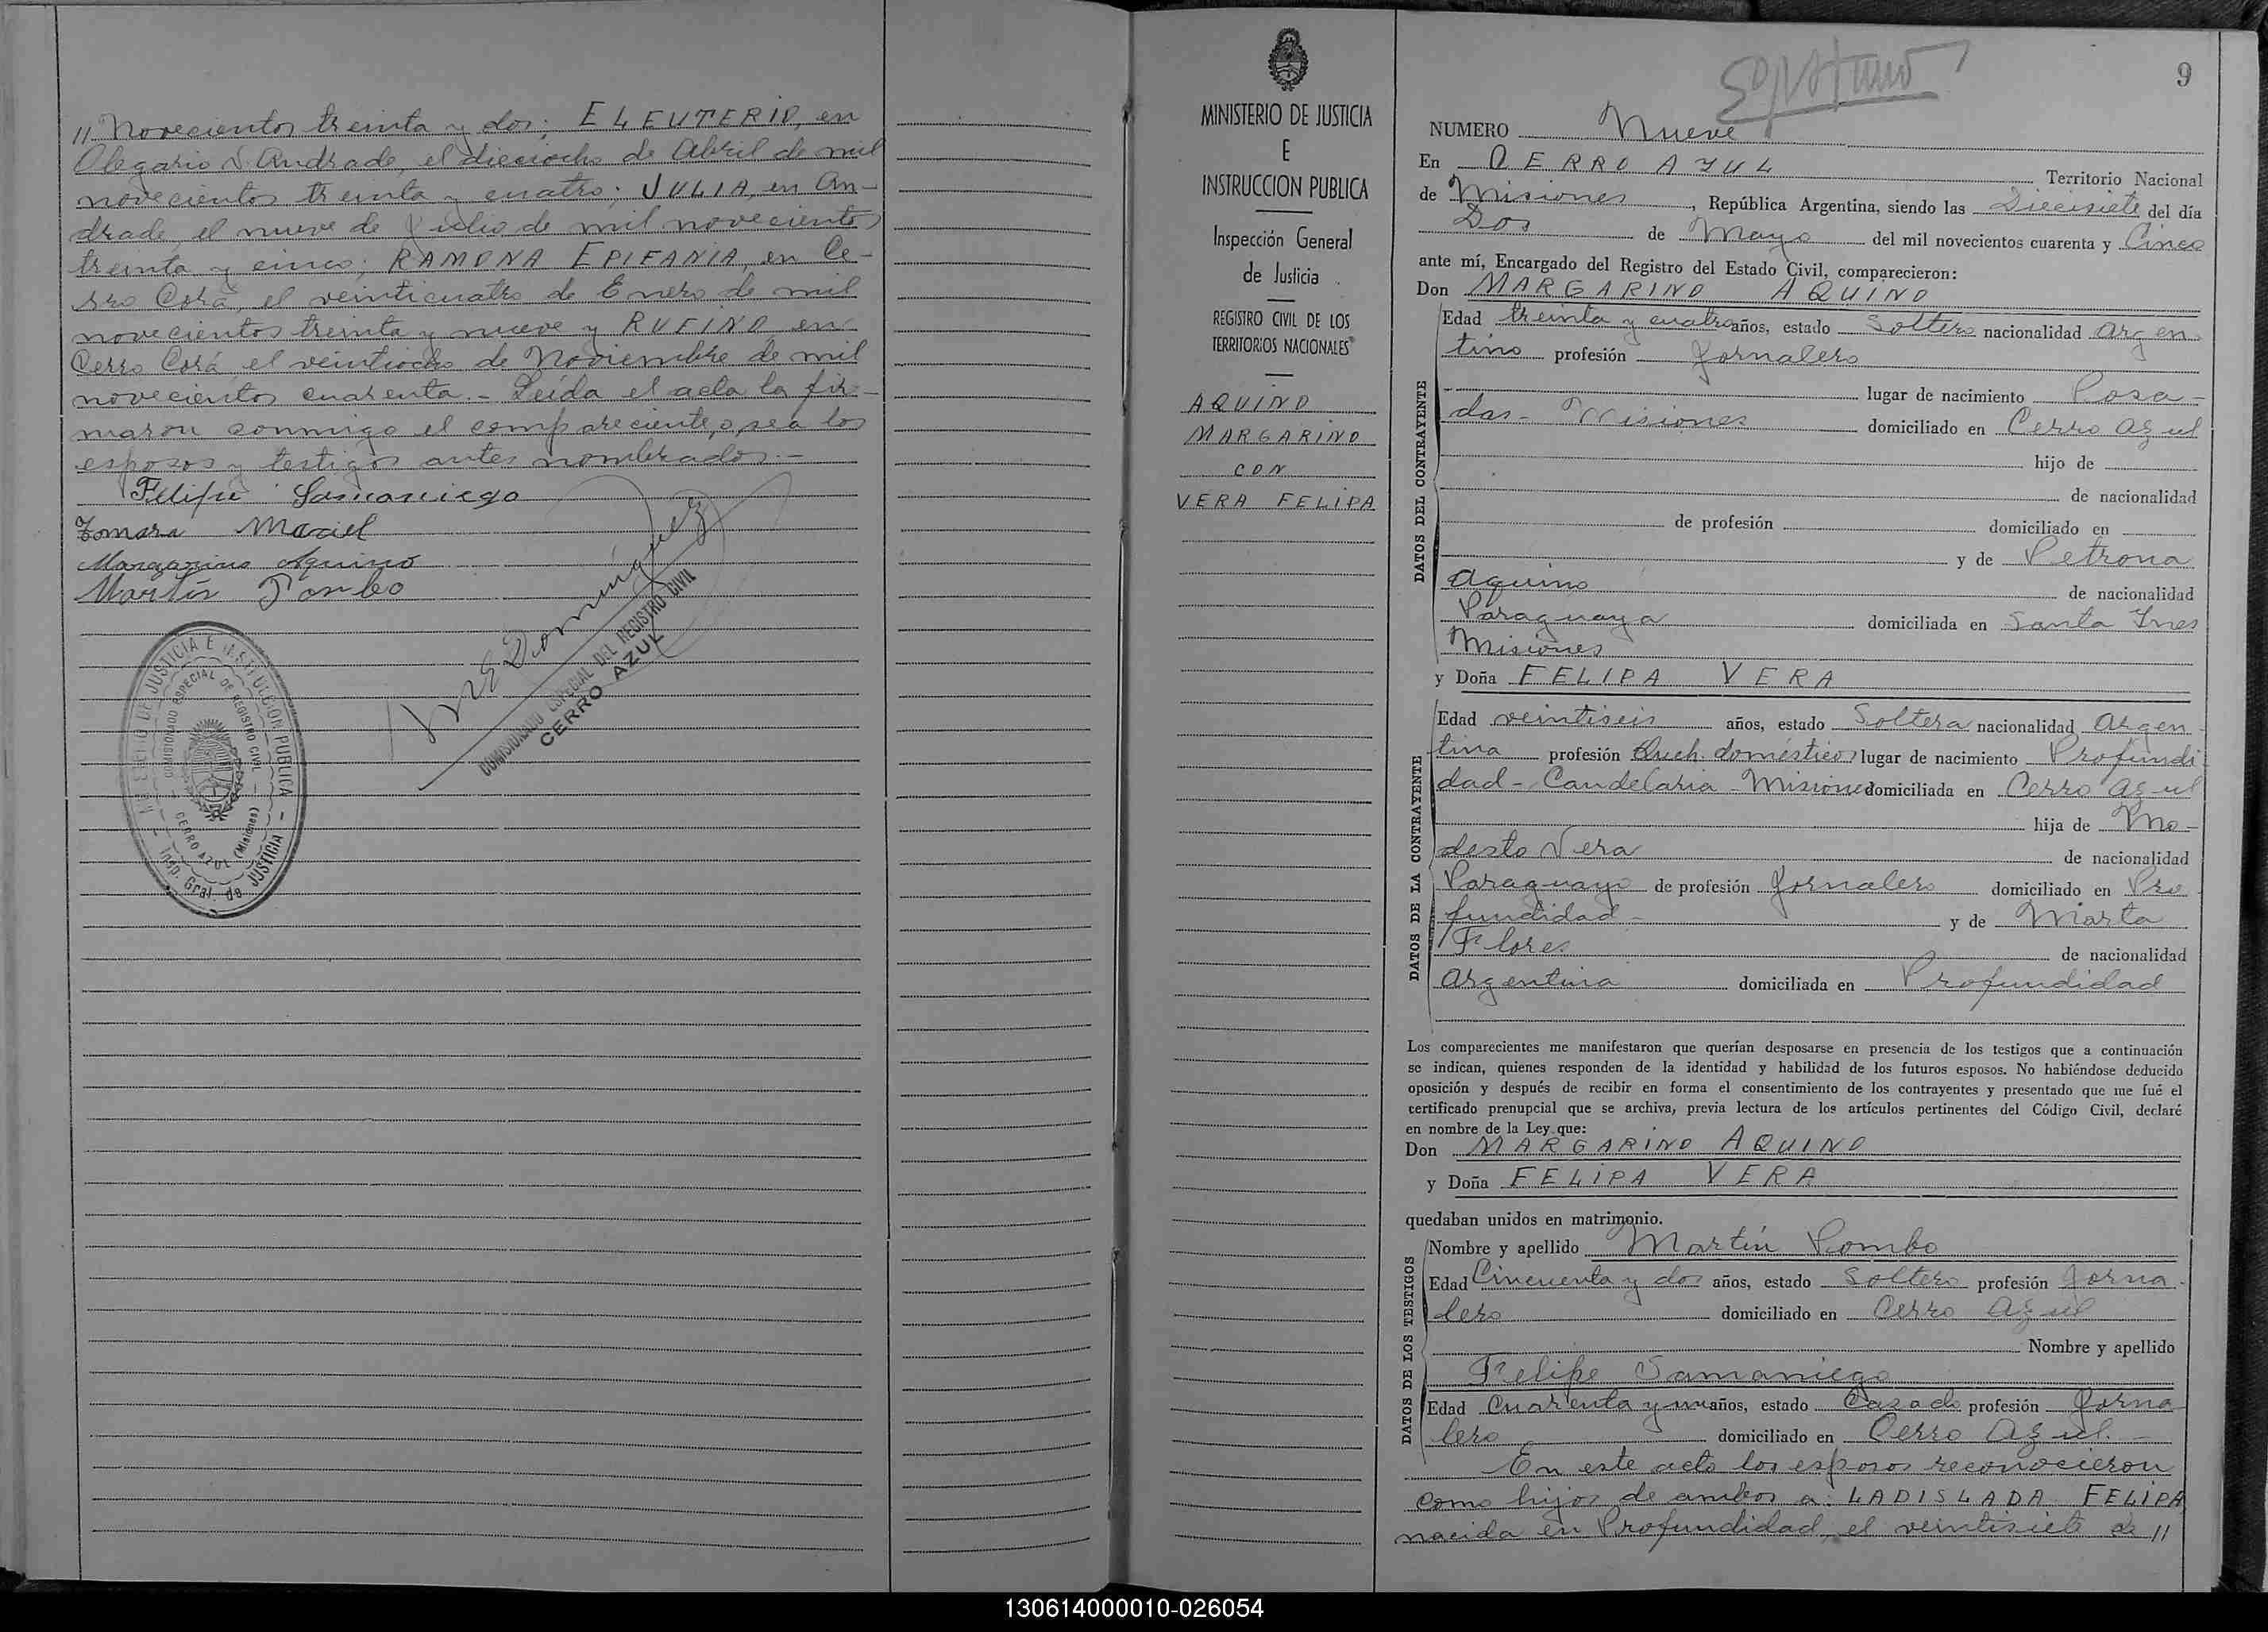 // Novecientos treinta y dos; ELEUTERIO, en
Olegario V. Andrade, el dieciocho de Abril de mil
novecientos treinta y cuatro; JULIA, en An-
drade, el nueve de Julio de mil novecientos
treinta y cinco; RAMONA EPIFANIA, en Ce-
rro Corá, el veinticuatro de Enero de mil
novecientos treinta y nueve y RUFINO en
Cerro Corá el veintiocho de Noviembre de mil
novecientos cuarenta.- Leída el acta la fir-
maron conmigo el compareciente, o sea los
esposos y testigos antes nombrados.-
Felipe Samaniego
Tomasa Maciel
Margarino Aquino
Martín Pombo
COMISIONADO ESPECIAL DEL REGISTRO CIVIL
CERRO AZUL
MINISTERIO DE JUSTICIA E INSTRUCCION PUBLICA
COMISIONADO ESPECIAL DE REGISTRO CIVIL
CERRO AZUL (Misiones)
Insp. Gral. de JUSTICIA
MINISTERIO DE JUSTICIA
E
INSTRUCCION PUBLICA
Inspección General
de Justicia
REGISTRO CIVIL DE LOS
TERRITORIOS NACIONALES
AQUINO
MARGARINO
CON
VERA FELIPA
9
NUMERO Nueve
En CERRO AZUL Territorio Nacional
de Misiones, República Argentina, siendo las Diecisiete del día
Dos de Mayo del mil novecientos cuarenta y Cinco
ante mí, Encargado del Registro del Estado Civil, comparecieron:
Don MARGARINO AQUINO
DATOS DEL CONTRAYENTE
Edad treinta y cuatro años, estado Soltero nacionalidad Argen-
tino profesión Jornalero
lugar de nacimiento Posa-
das - Misiones domiciliado en Cerro Azul
hijo de
de nacionalidad
de profesión domiciliado en
y de Petrona
Aquino de nacionalidad
Paraguaya domiciliada en Santa Ines
Misiones
y Doña FELIPA VERA
DATOS DE LA CONTRAYENTE
Edad veintiseis años, estado Soltera nacionalidad Argen-
tina profesión Queh. domésticos lugar de nacimiento Profundi-
dad - Candelaria - Misiones domiciliada en Cerro Azul
hija de Mo-
desto Vera de nacionalidad
Paraguayo de profesión Jornalero domiciliado en Pro-
fundidad - y de Marta
Flores de nacionalidad
Argentina domiciliada en Profundidad
Los comparecientes me manifestaron que querían desposarse en presencia de los testigos que a continuación
se indican, quienes responden de la identidad y habilidad de los futuros esposos. No habiéndose deducido
oposición y después de recibir en forma el consentimiento de los contrayentes y presentado que me fué el
certificado prenupcial que se archiva, previa lectura de los artículos pertinentes del Código Civil, declaré
en nombre de la Ley que:
Don MARGARINO AQUINO
y Doña FELIPA VERA
quedaban unidos en matrimonio.
DATOS DE LOS TESTIGOS
Nombre y apellido Martín Pombo
Edad Cincuenta y dos años, estado Soltero profesión Jorna-
lero domiciliado en Cerro Azul
Nombre y apellido
Felipe Samaniego
Edad Cuarenta y un años, estado Casado profesión Jorna-
lero domiciliado en Cerro Azul.-
En este acto los esposos reconocieron
como hijos de ambos a: LADISLADA FELIPA
nacida en Profundidad, el veintisiete de //
130614000010-026054